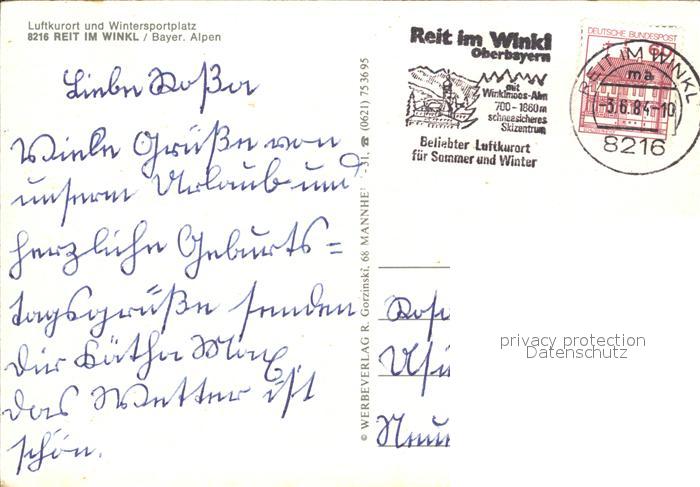 Luftkurort und Wintersportplatz
8216 REIT IM WINKL / Bayer. Alpen
Liebe Rosa
Viele Grüße von
unserm Urlaub und
herzliche Geburts=
tagsgrüße senden
Dir Käthe Max
das Wetter ist
schön.
© WERBEVERLAG R. Gorzinski, 68 MANNHE -31, ☎ (0621) 75 36 95
Reit im Winkl
Oberbayern
mit
Winklmoos-Alm
700-1860m
schneesicheres
Skizentrum
Beliebter Luftkurort
für Sommer und Winter
DEUTSCHE BUNDESPOST
60
REIT IM WINKL
ma
-3.6.84-10
8216
Rosa
privacy protection
Datenschutz